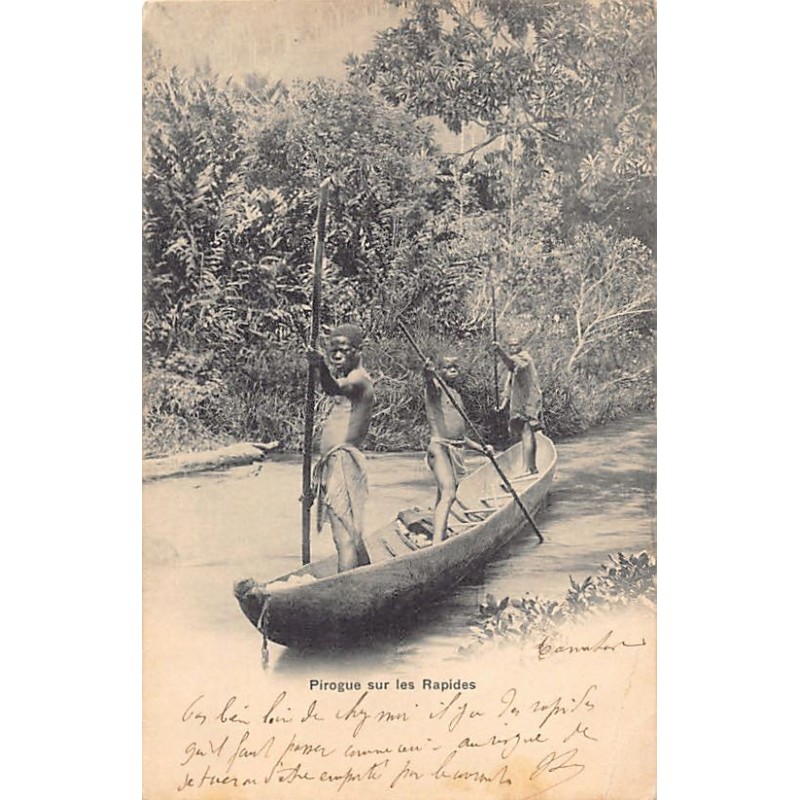 Tamatave
Pirogue sur les Rapides
Pas bien loin de chez moi il y a des rapides
qu'il faut passer comme ceci - au risque de
se tuer ou d'être emporté par le courant